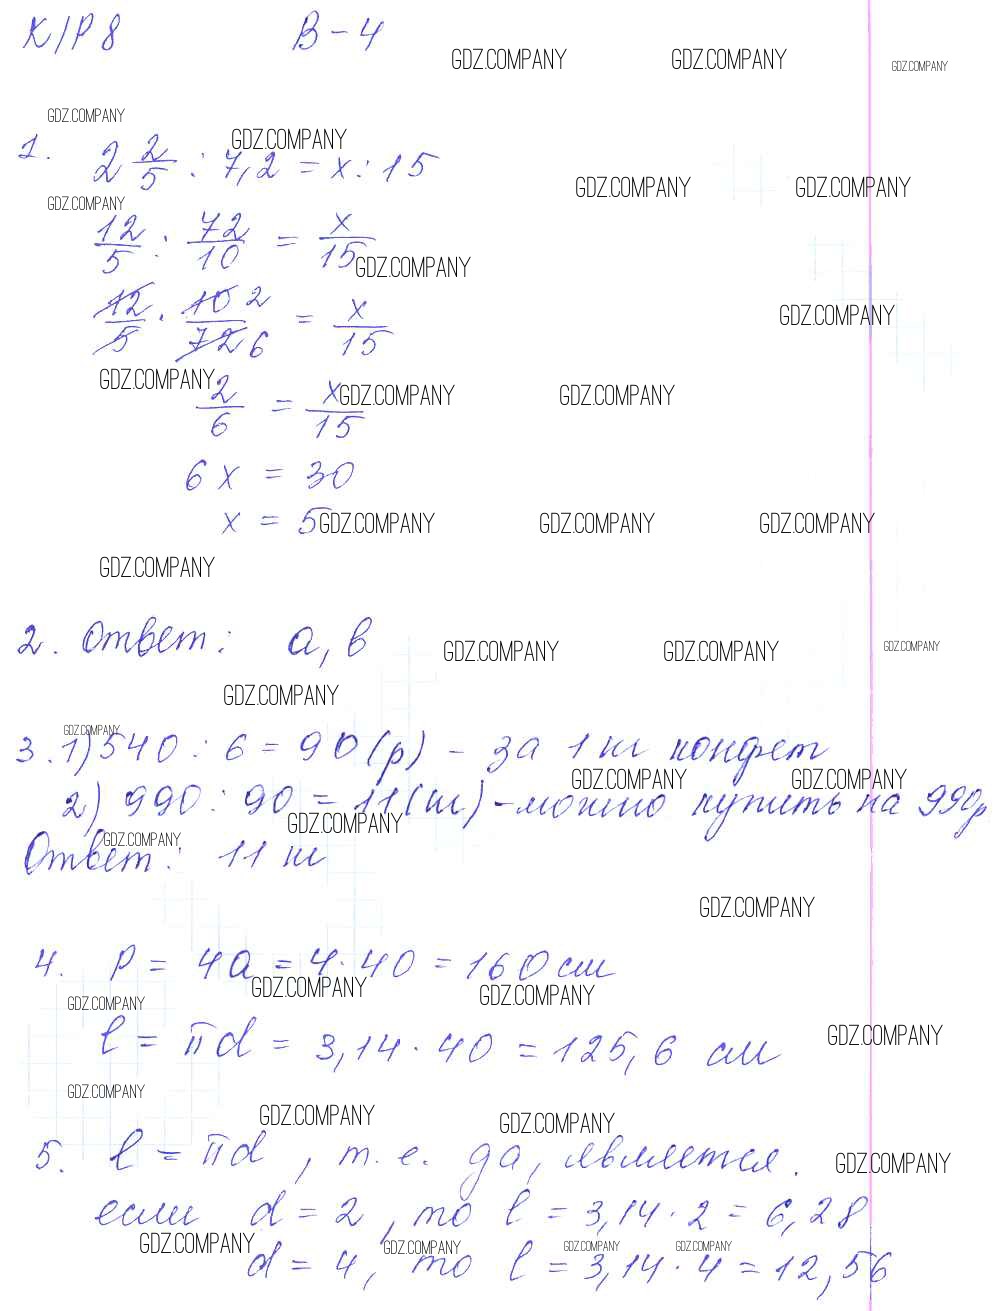 К/Р 8 В-4
GDZ.COMPANY GDZ.COMPANY GDZ.COMPANY
GDZ.COMPANY GDZ.COMPANY
1. 2 2/5 : 7,2 = x : 15
GDZ.COMPANY GDZ.COMPANY
GDZ.COMPANY
12/5 : 72/10 = x/15
GDZ.COMPANY
12/5 · 10 2/72 6 = x/15
GDZ.COMPANY
GDZ.COMPANY GDZ.COMPANY GDZ.COMPANY
2/6 = x/15
6x = 30
x = 5
GDZ.COMPANY GDZ.COMPANY GDZ.COMPANY
GDZ.COMPANY
2. Ответ: а, в
GDZ.COMPANY GDZ.COMPANY GDZ.COMPANY
GDZ.COMPANY
GDZ.COMPANY
3. 1) 540 : 6 = 90 (р) - за 1 кг конфет
GDZ.COMPANY GDZ.COMPANY
2) 990 : 90 = 11 (кг) - можно купить на 990р
GDZ.COMPANY GDZ.COMPANY
Ответ: 11 кг
GDZ.COMPANY
4. P = 4a = 4 · 40 = 160 см
GDZ.COMPANY GDZ.COMPANY GDZ.COMPANY
l = πd = 3,14 · 40 = 125,6 см
GDZ.COMPANY
GDZ.COMPANY
GDZ.COMPANY GDZ.COMPANY
5. l = πd, т.е. да, является.
GDZ.COMPANY
если d = 2, то l = 3,14 · 2 = 6,28
GDZ.COMPANY GDZ.COMPANY GDZ.COMPANY GDZ.COMPANY
d = 4, то l = 3,14 · 4 = 12,56